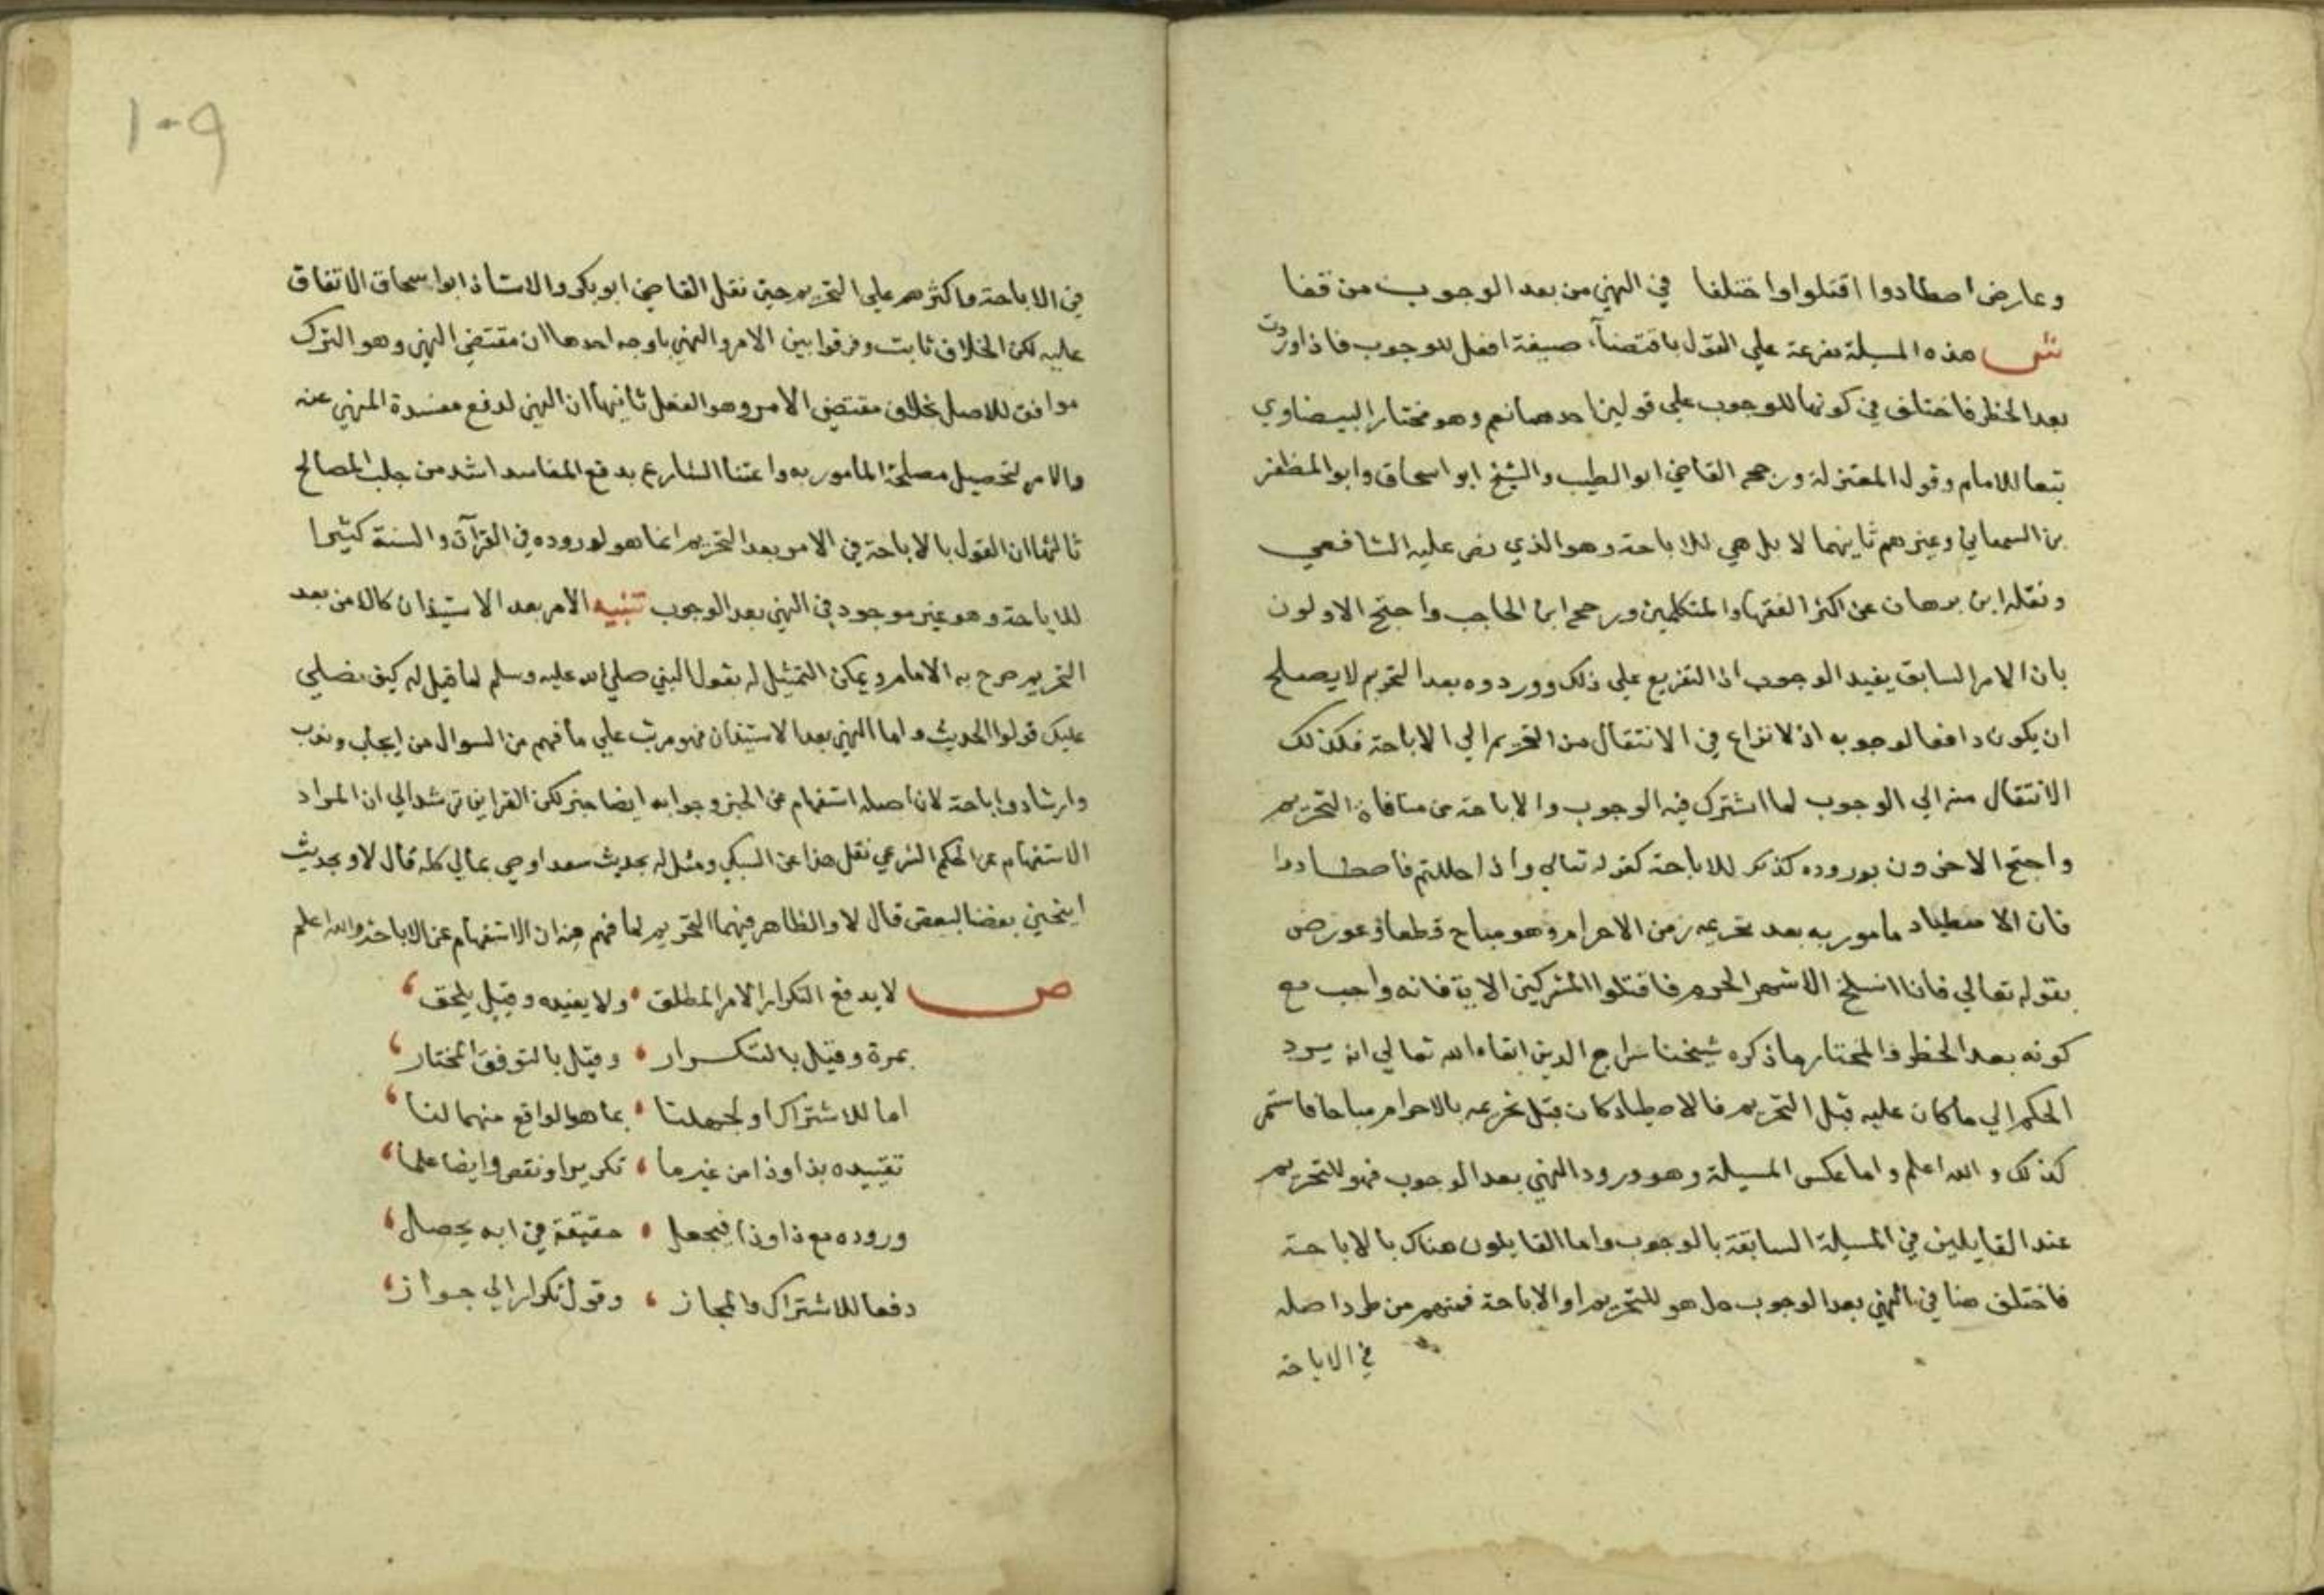 وعارض اصطادوا اقتلوا واختلفا في النهي من بعد الوجوب من قفا
ش هذه المسيلة مفرعة علي القول باقتضاء صيغة افعل للوجوب فاذا وردت
بعد الحظر فاختلف في كونها للوجوب علي قولين احدهما نعم وهو مختار البيضاوي
تبعا للامام وقول المعتزلة ورجحه القاضي ابو الطيب والشيخ ابو اسحاق وابو المظفر
بن السمعاني وغيرهم ثانيهما لا بل هي للاباحة وهو الذي نص عليه الشافعي
ونقله ابن برهان عن اكثر الفقها والمتكلمين ورجحه ابن الحاجب واحتج الاولون
بان الامر السابق يفيد الوجوب اذ التفريع علي ذلك ووروده بعد التحريم لا يصلح
ان يكون دافعا لوجوبه اذ لا نزاع في الانتقال من التحريم الي الاباحة فكذلك
الانتقال منه الي الوجوب لما اشترك فيه الوجوب والاباحة من منافاة التحريم
واحتج الاخرون بوروده كذلك للاباحة كقوله تعالي واذا حللتم فاصطادوا
فان الاصطياد مامور به بعد تحريمه زمن الاحرام وهو مباح قطعا وعورض
بقوله تعالي فاذا انسلخ الاشهر الحرم فاقتلوا المشركين الاية فانه واجب مع
كونه بعد الحظر والمختار ما ذكره شيخنا سراج الدين ابقاه الله تعالي انه يرد
الحكم الي ما كان عليه قبل التحريم فالاصطياد كان قبل تحريمه بالاحرام مباحا فاستمر
كذلك والله اعلم واما عكس المسيلة وهو ورود النهي بعد الوجوب فهو للتحريم
عند القايلين في المسيلة السابقة بالوجوب واما القايلون هناك بالاباحة
فاختلف هنا في النهي بعد الوجوب هل هو للتحريم او الاباحة فمنهم من طرد اصله
في الاباحة
١٠٩
في الاباحة واكثرهم علي التحريم حتي نقل القاضي ابو بكر والاستاذ ابو اسحاق الاتفاق
عليه لكن الخلاف ثابت وفرقوا بين الامر والنهي باوجه احدها ان مقتضي النهي وهو الترك
موافق للاصل بخلاف مقتضي الامر وهو الفعل ثانيها ان النهي لدفع مفسدة المنهي عنه
والامر لتحصيل مصلحة المامور به واعتنا الشارع بدفع المفاسد اشد من جلب المصالح
ثالثها ان القول بالاباحة في الامر بعد التحريم انما هو لوروده في القرآن والسنة كثيرا
للاباحة وهو غير موجود في النهي بعد الوجوب تنبيه الامر بعد الاستيذان كالامر بعد
التحريم صرح به الامام ويمكن التمثيل له بقول النبي صلي الله عليه وسلم لما قيل له كيف نصلي
عليك قولوا الحديث واما النهي بعد الاستيذان فهو مرتب علي ما فهم من السوال من ايجاب وندب
وارشاد واباحة لان اصله استفهام عن الخبر وجوابه ايضا خبر لكن القراين ترشد الي ان المراد
الاستفهام عن الحكم الشرعي نقل هذا عن السبكي ومثل له بحديث سعد اوصي بمالي كله قال لا وبحديث
اينحني بعضنا لبعض قال لا والظاهر فيهما التحريم لما فهم من ان الاستفهام عن الاباحة والله اعلم
ص لا يدفع التكرار الامر المطلق ولا يفيده وقيل يلحق
بمرة وقيل بالتكرار وقيل بالتوقف المختار
اما للاشتراك او لجهلنا بما هو الواقع منهما لنا
تقييده بذا وذا من غير ما تكرير او نقص وايضا علما
وروده مع ذا وذا فيجعل حقيقة في ابه يحصل
دفعا للاشتراك والمجاز وقول تكرار الي جواز